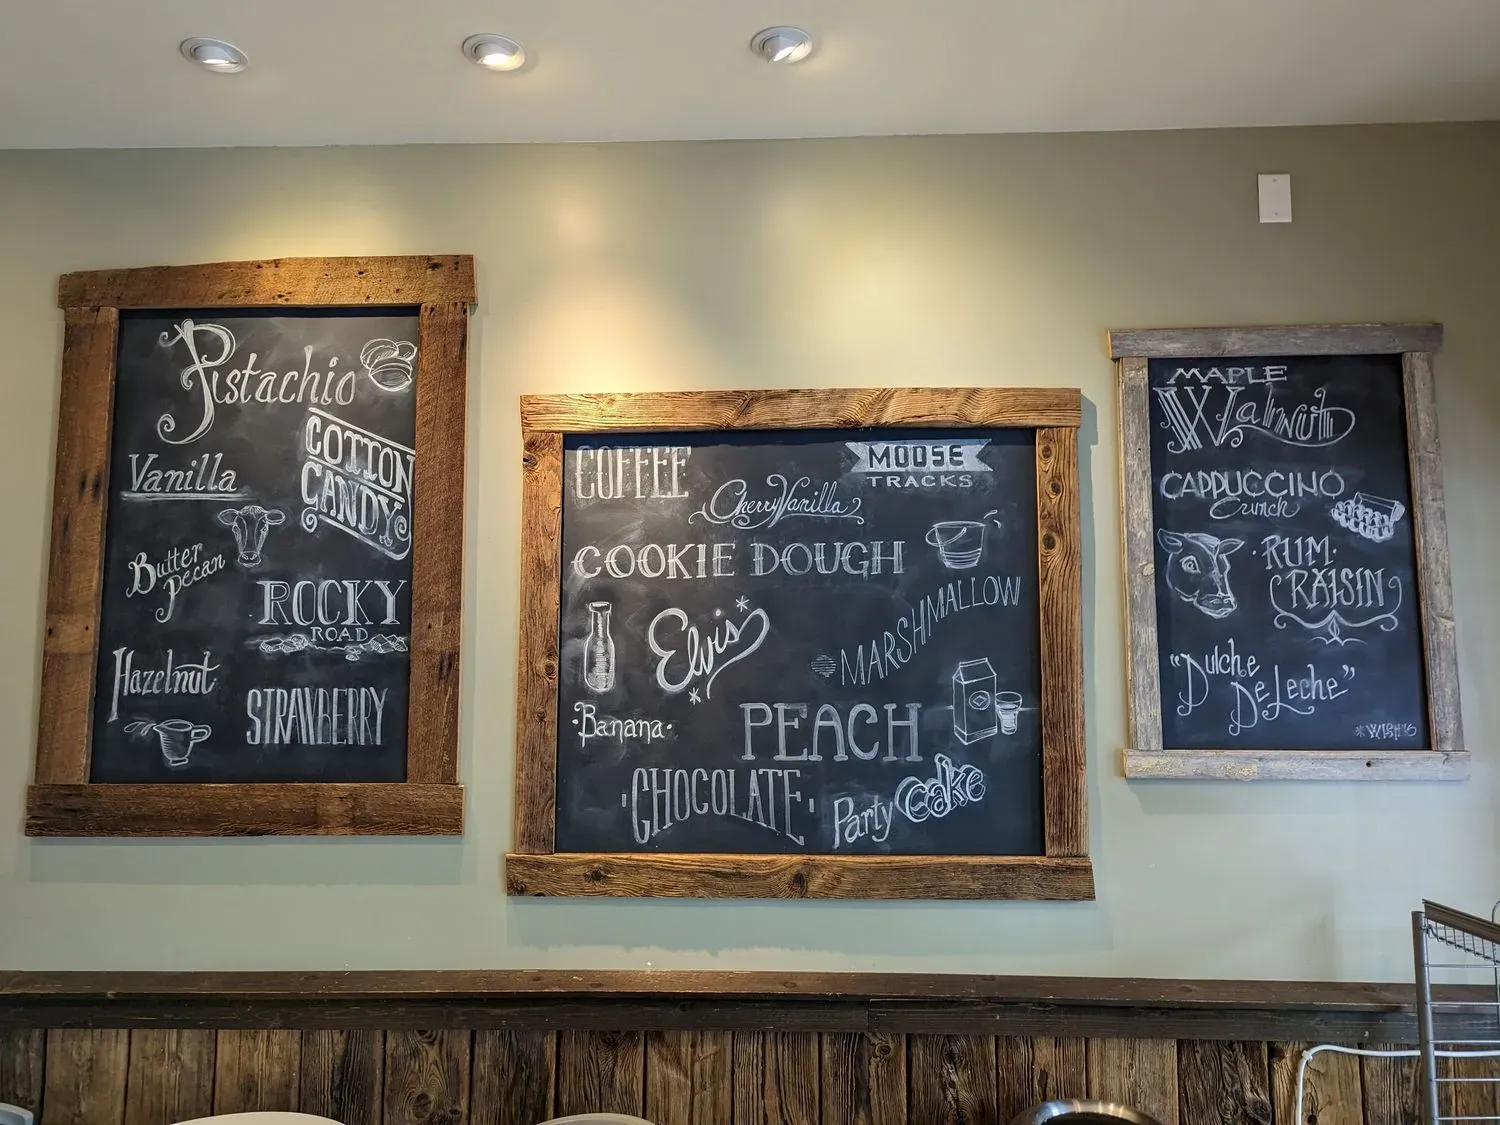 Pistachio
COTTON
CANDY
Vanilla
Butter
Pecan
ROCKY
ROAD
Hazelnut
STRAWBERRY
COFFEE
MOOSE
TRACKS
Cherry Vanilla
COOKIE DOUGH
Elvis
MARSHMALLOW
Banana
PEACH
CHOCOLATE
Party Cake
MAPLE
Walnut
CAPPUCCINO
Crunch
RUM
RAISIN
"Dulche
De Leche"